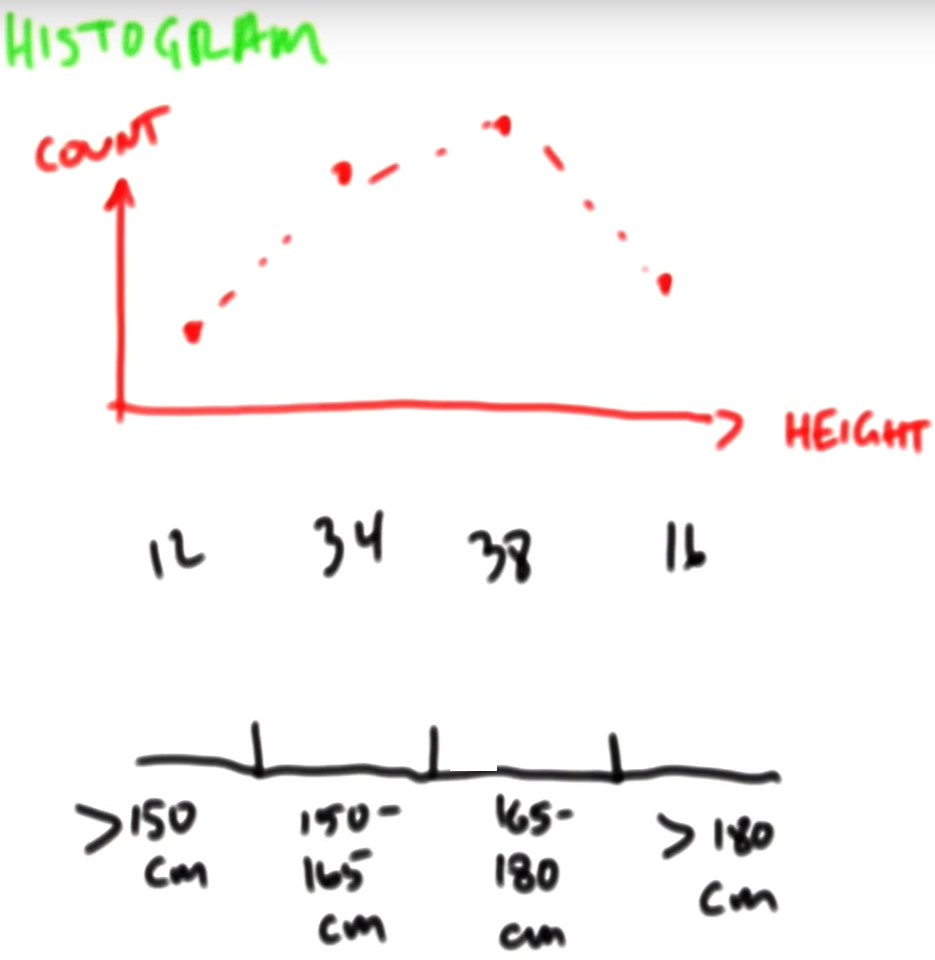 HISTOGRAM
COUNT
HEIGHT
12 34 38 16
>150 cm
150-165 cm
165-180 cm
> 180 cm